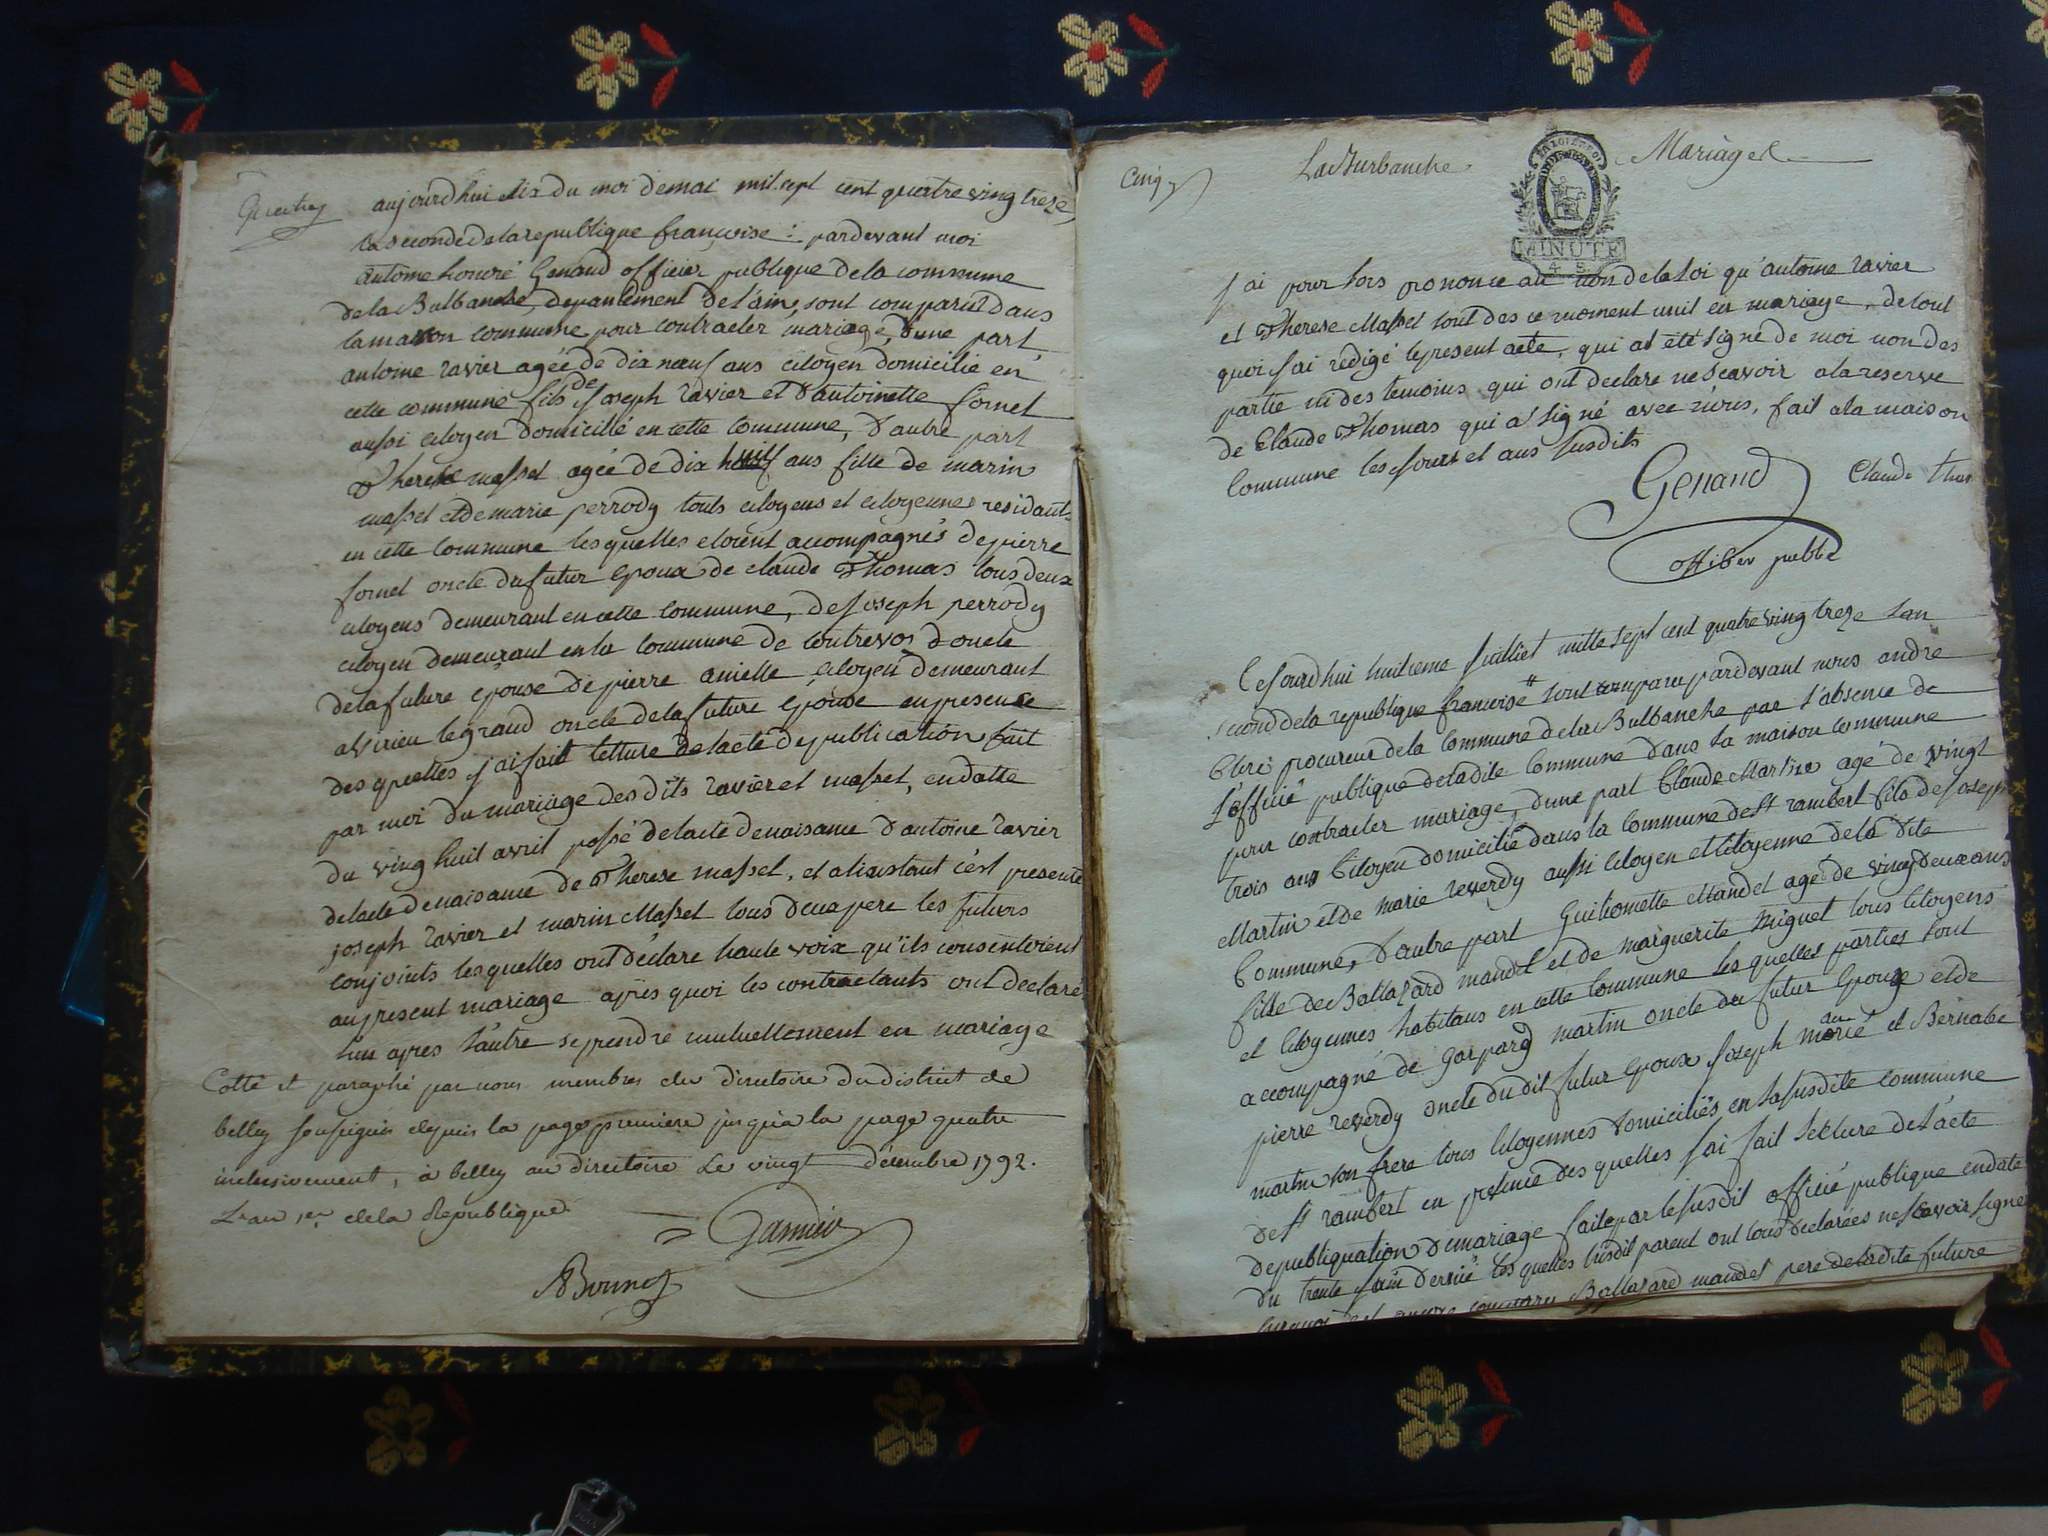 Quatre
aujourdhui dix du moi de mai mil sept cent quatre ving treze
la seconde de la republique françoise : pardevant moi
antoine honoré Genand officier publique de la commune
de la Bulbanche, departement de l'ain, sont comparut dans
la maison commune pour contracter mariage, d'une part
antoine ravier agée de dix neuf ans citoyen domicilie en
cette commune fils de joseph ravier et d'antoinette fornet
aussi citoyen domicillé en cette commune, d'autre part
Therese masset agée de dix huit ans fille de marin
masset et de marie perrody touts citoyens et citoyennes residant
en cette commune lesquelles etoient accompagnés de pierre
fornet oncle du futur epoux de claude Thomas tous deux
citoyens demeurant en cette commune, de joseph perrody
citoyen demeurant en la commune de contrevos d'oncle
de la future epouse de pierre amielle citoyen demeurant
a virieu le grand oncle de la future epouse en presence
des quelles j'ai fait letture de l'acte de publication fait
par moi du mariage des dits ravier et masset, en datte
du ving huit avril passé de lacte de naisance d'antoine ravier
de lacte de naisance de Therese masset, et a linstant c'est presenté
joseph ravier et marin Masset tous deux pere les futurs
conjoints lesquelles ont déclare haute voix qu'ils consentoient
au present mariage après quoi les contractants ont déclaré
l'un apres l'autre se prendre mutuellement en mariage
Cotté et paraphé par nous membres du directoire du district de
belley soussignés depuis la page premiere jusqu'a la page quatre
inclusivement, à belley au directoire le vingt décembre 1792.
L'an 1er de la République.
Garnier
Bonnet
Cinq
La Burbanche
Mariages
LA LOI ET LE ROI
MINUTE
4. S.
j'ai pour lors prononcé au non de la loi qu'antoine ravier
et Therese Masset sont des ce moment unit en mariage, de tout
quoi j'ai rédigé le present acte, qui at été signé de moi non des
partie ni des temoins qui ont declare ne scavoir a la reserve
de Claude Thomas qui a signé avec nous, fait a la maison
commune les jours et ans susdits
Genand
Claude thom
officier public
Cejourdhui huitieme juilliet mille sept cent quatre ving treze lan
second de la republique francoise # sont comparu pardevant nous andré
Clerc procureur de la Commune de la Bulbanche par l'absence de
L'officié publique de la dite Commune dans la maison Commune
pour contracter mariage, d'une part Claude Martin agé de vingt
trois ans Citoyen domicilié dans la commune de st rambert fils de joseph
Martin et de marie reverdy aussi citoyen et Citoyenne de la dite
Commune, d'autre part Guiliomette Mandet agé de vingdeux ans
fille de Battazard mandet et de marguerite miguet tous Citoyens
et Citoyennes habitans en cette Commune les quelles parties sont
accompagné de gaspard martin oncle du futur Epouze et de
pierre reverdy oncle du dit futur epoux joseph morié et Bernabé
martin son frere tous Citoyennes domiciliés en la susdite commune
de st rambert en presence des quelles j'ai fait lecture de l'acte
de publiquation de mariage fait par le susdit officié publique en date
du trente juin dernié les quelles susdit parent ont tous declarées ne scavoir signé
Battazard mandet pere de la dite future